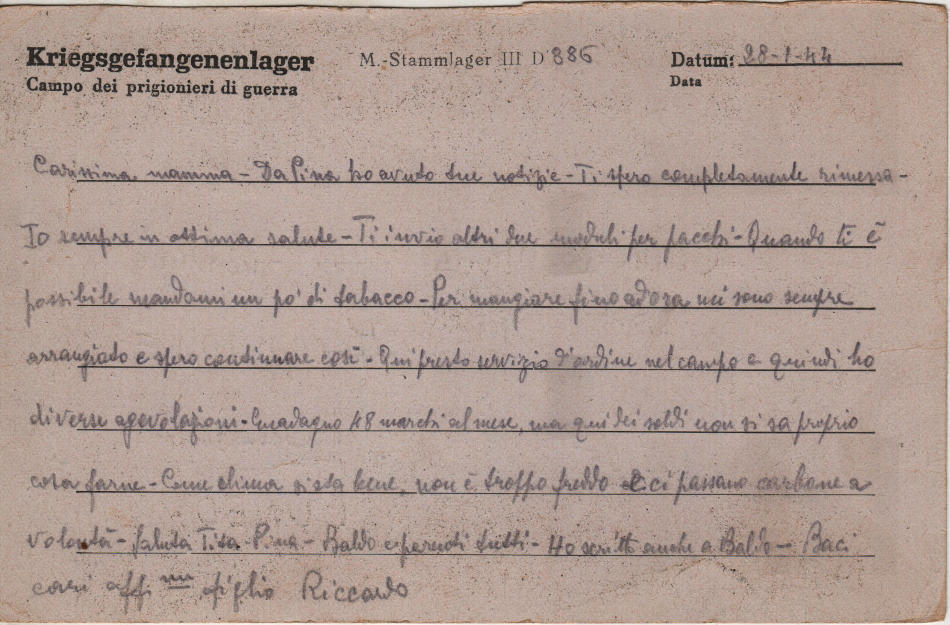 Kriegsgefangenenlager M.-Stammlager III D 886 Datum: 28-1-44
Campo dei prigionieri di guerra Data
Carissima mamma - Da Pina ho avuto tue notizie - Ti spero completamente rimessa -
Io sempre in ottima salute - Ti invio altri due moduli per pacchi - Quando ti è
possibile mandami un po' di tabacco - Per mangiare fino adora mi sono sempre
arrangiato e spero continuare così - Qui presto servizio d'ordine nel campo e quindi ho
diverse agevolazioni - Guadagno 48 marchi al mese, ma qui dei soldi non si sa proprio
cosa farne - Come clima si sta bene, non è troppo freddo e ci passano carbone a
volontà - Saluta Tita Pina - Baldo e parenti tutti - Ho scritto anche a Baldo - Baci
cari aff mo figlio Riccardo